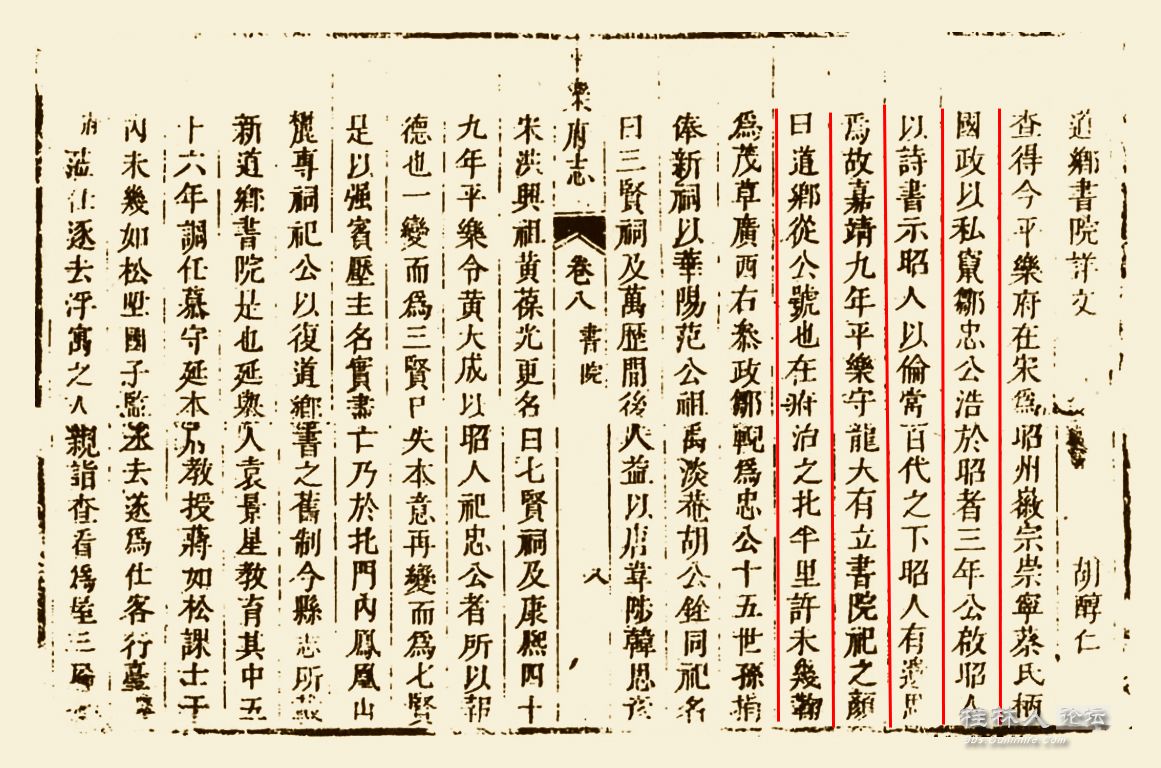 道鄉書院詳文 胡醇仁
查得今平樂府在宋為昭州徽宗崇寧蔡氏柄
國政以私竄鄒忠公浩於昭者三年公啟昭人
以詩書示昭人以倫常百代之下昭人有遺思
焉故嘉靖九年平樂守龍大有立書院祀之顏
曰道鄉從公號也在府治之北半里許未幾鞠
爲茂草廣西右叅政鄒輗爲忠公十五世孫捐
俸新祠以華陽范公祖禹淡菴胡公銓同祀名
曰三賢祠及萬歷間後人益以唐韋陟韓思彥
樂府志 卷八 書院 八
宋洪興祖黃葆光更名曰七賢祠及康熙四十
九年平樂令黃大成以昭人祀忠公者所以報
德也一變而爲三賢已失本意再變而爲七賢
足以强賓壓主名實盡亡乃於北門內鳳凰山
麓專祠祀公以復道鄉書之舊制今縣志所載
新道鄉書院是也延興人袁景星教育其中五
十六年調任慕守延本府教授蔣如松課士于
內未幾如松陞國子監丞去遂爲仕客行臺
府 蒞任逐去浮寓之人親詣查看爲屋三層
桂林人 论坛
bbs.guilinlife.com